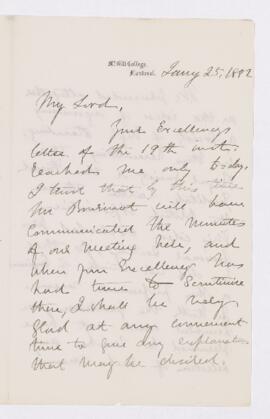 McGill College,
Montreal,
Jany 25, 1882
My Lord,
Your Excellency's
letter of the 19th inst.
reached me only to-day.
I trust that by this time
Mr Bourinot will have
communicated the minutes
of our meeting here, and
when your Excellency has
had time to scrutinise
them, I shall be very
glad at any convenient
time to give any explanation
that may be desired.